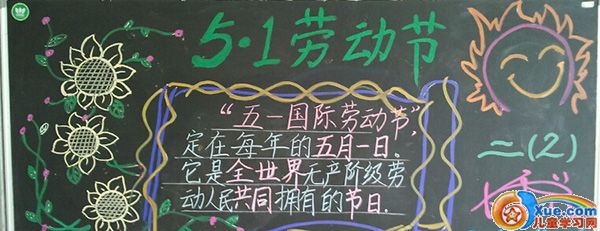 5·1劳动节
“五一国际劳动节”,
定在每年的五月一日。
它是全世界无产阶级劳
动人民共同拥有的节日.
二(2)
Xue.com
儿童学习网